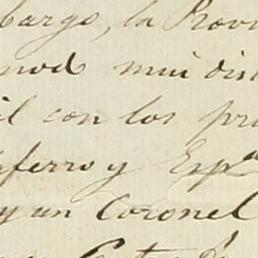 bargo, la Provi
mod mui dis
il con los pr
ferro y Esp.ª
y un Coronel